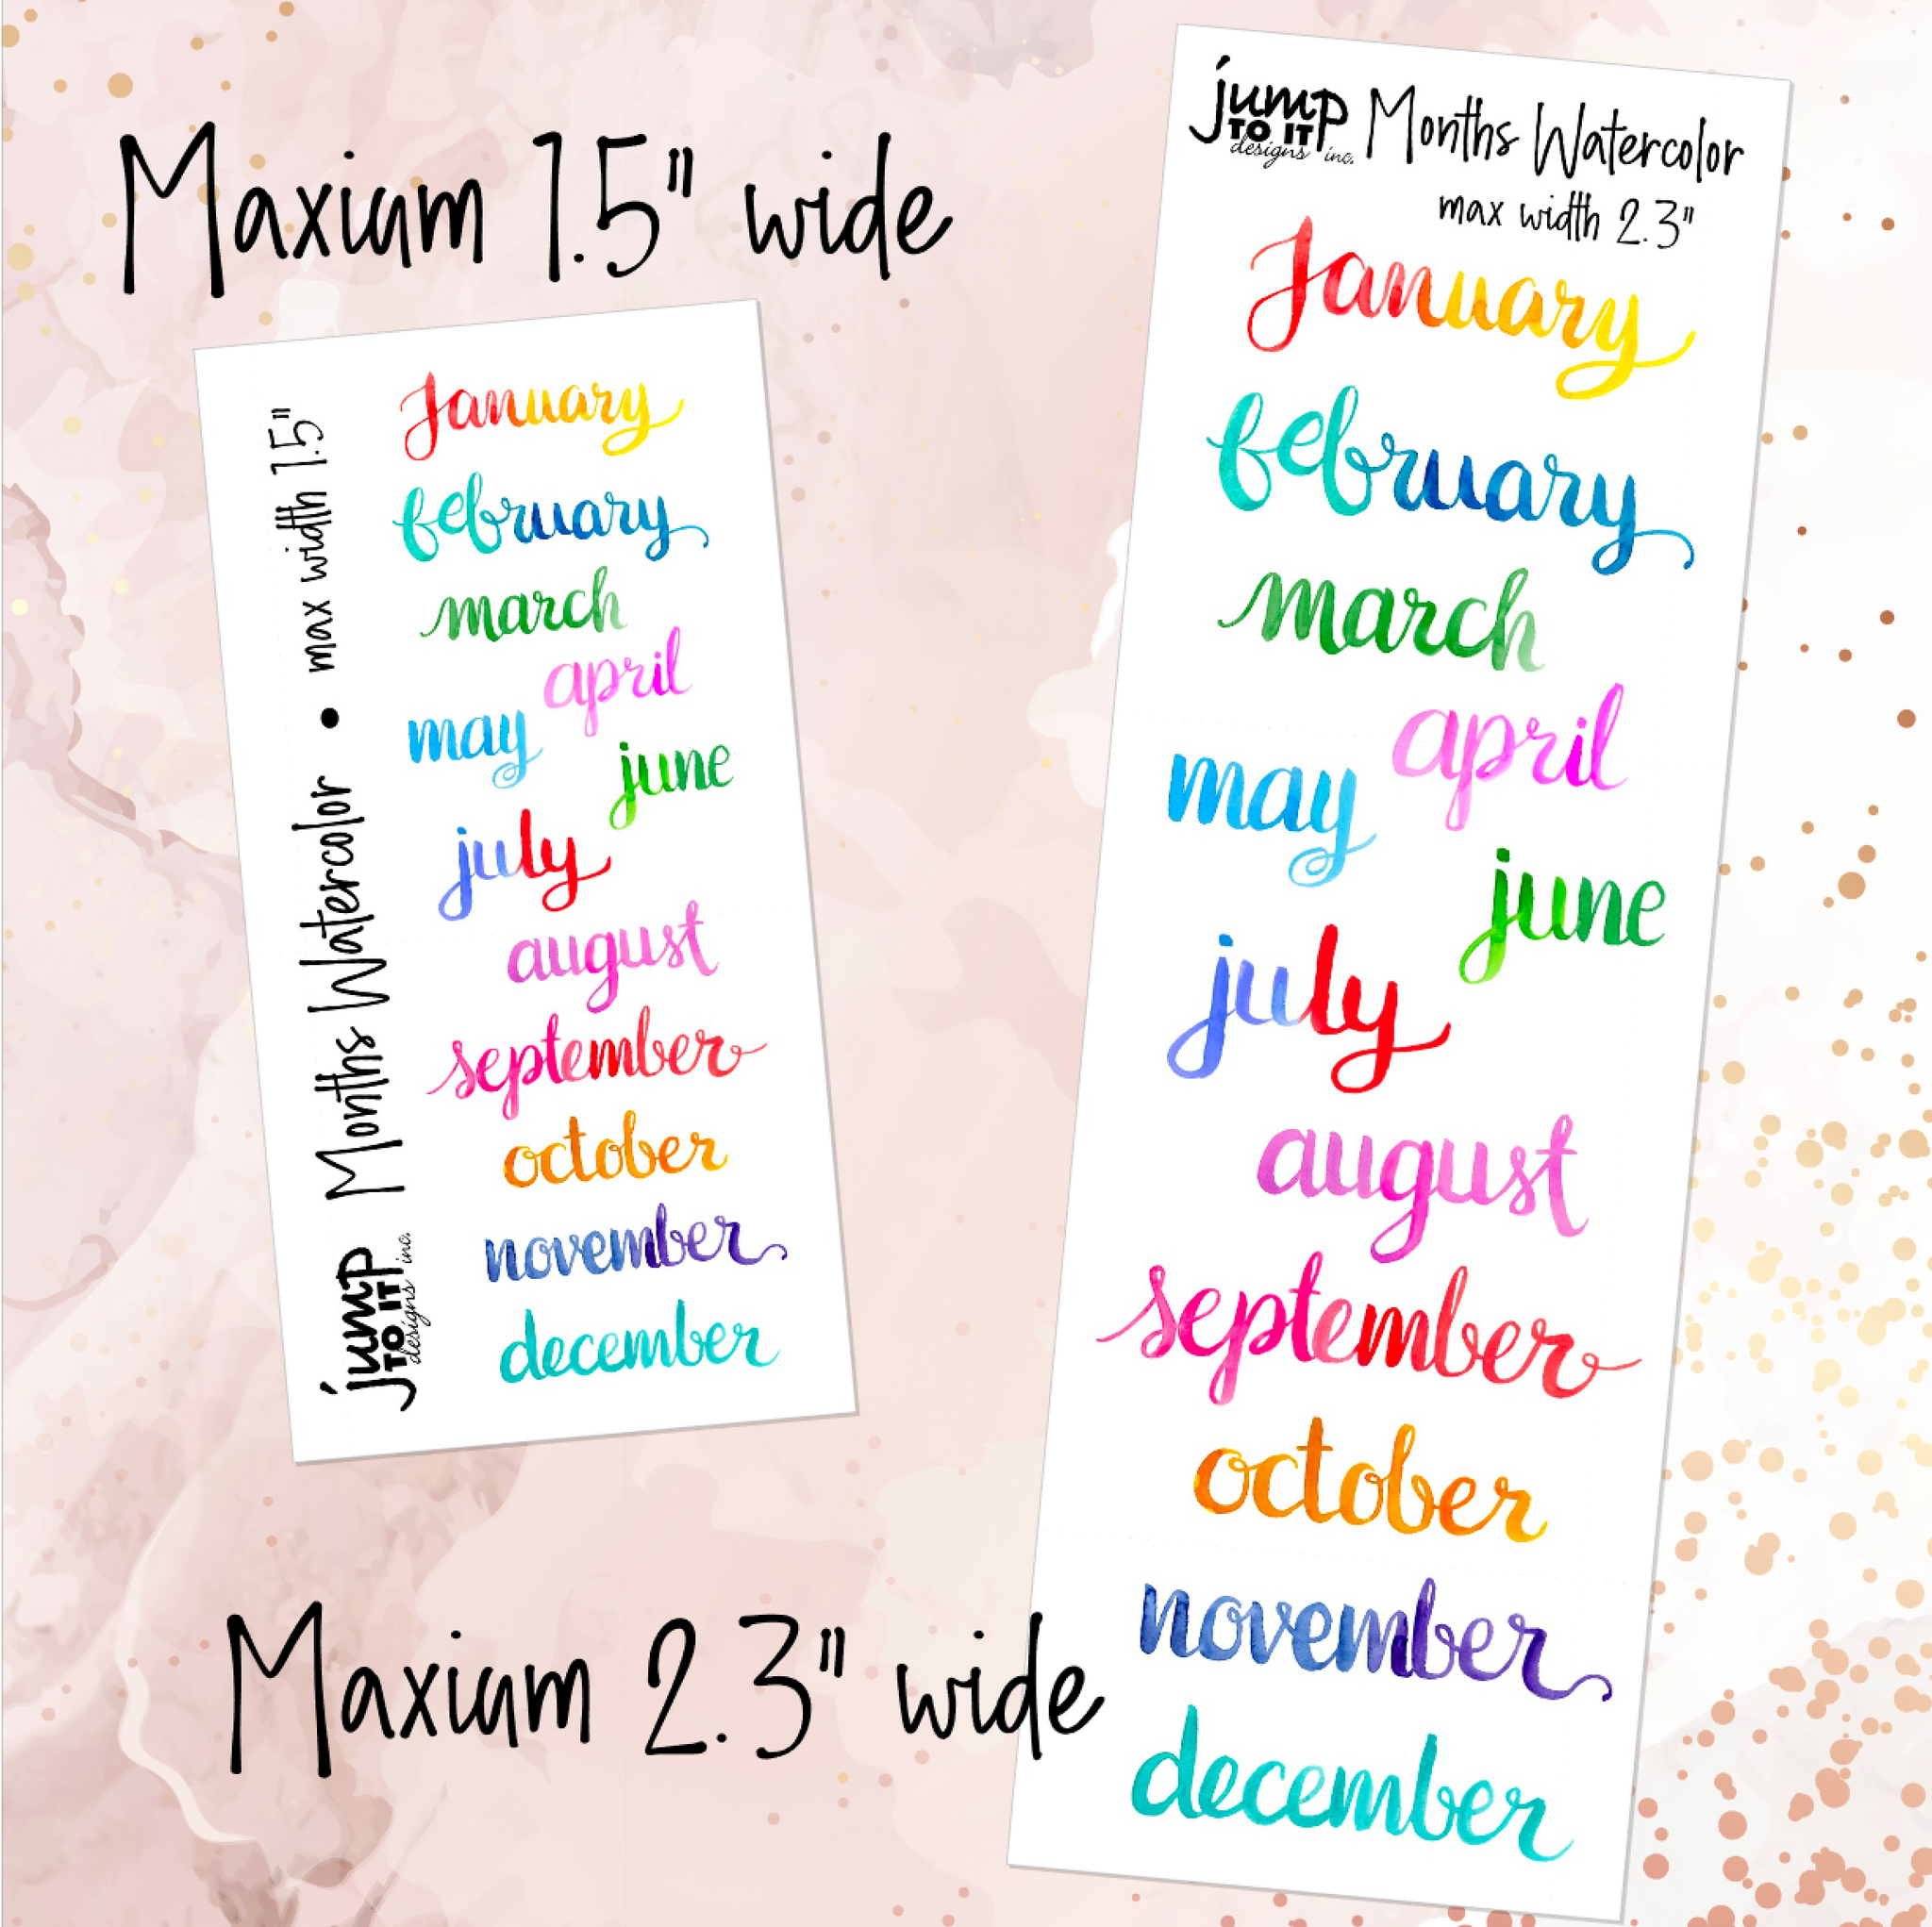 Maxium 1.5" wide
jump
TO IT
designs inc.
Months Watercolor • max width 1.5"
January
february
march
april
may
june
july
august
september
october
november
december
Maxium 2.3" wide
jump
TO IT
designs inc.
Months Watercolor
max width 2.3"
January
february
march
april
may
june
july
august
september
october
november
december